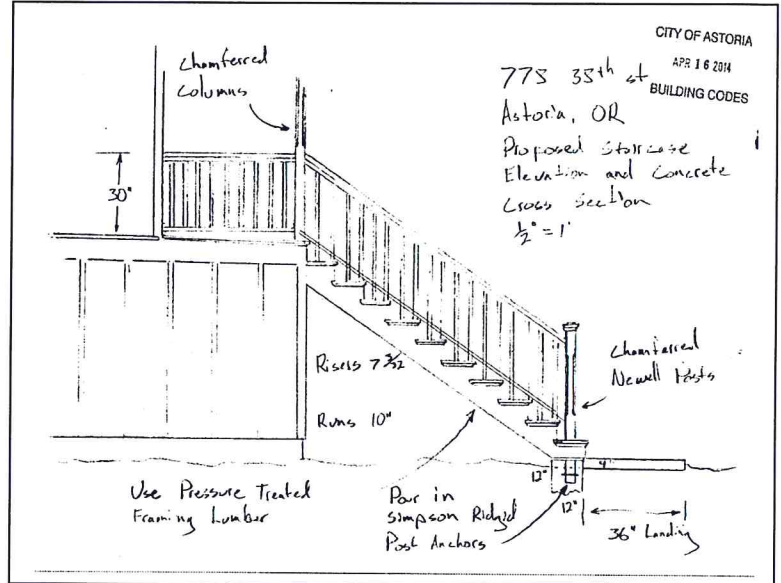 CITY OF ASTORIA
APR 16 2014
BUILDING CODES
775 35th st
Astoria, OR
Proposed Staircase
Elevation and Concrete
Cross Section
½" = 1'
Chamferred
Columns
30"
Risers 7 3/32
Runs 10"
Chamfarred
Newell Posts
Use Pressure Treated
Framing Lumber
Pour in
Simpson Ridgid
Post Anchors
12"
12"
4"
36" Landing